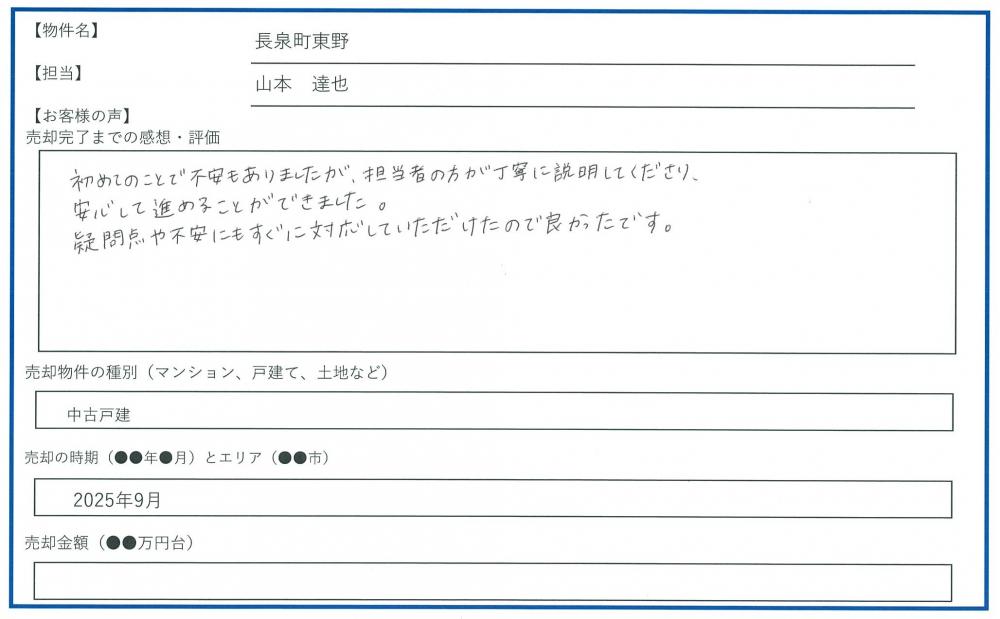 【物件名】
長泉町東野
【担当】
山本　達也
【お客様の声】
売却完了までの感想・評価
初めてのことで不安もありましたが、担当者の方が丁寧に説明してくださり、
安心して進めることができました。
疑問点や不安にもすぐに対応していただけたので良かったです。
売却物件の種別（マンション、戸建て、土地など）
中古戸建
売却の時期（●●年●月）とエリア（●●市）
2025年9月
売却金額（●●万円台）